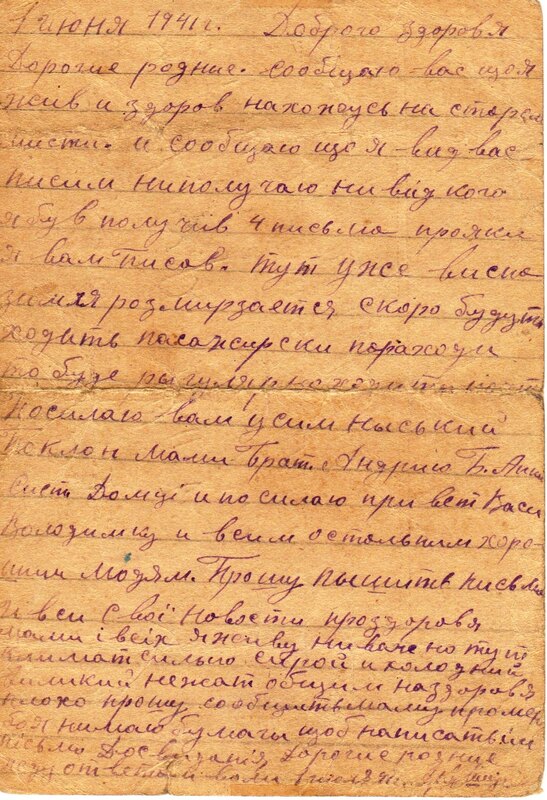 1 июня 1941 г. Доброго здоровя
Дорогие родние. сообщаю вас що я
жив и здоров нахожусь на старом
мисти. и сообщаю що я вид вас
писим ниполучаю ни вид кого
я був получив 4 письма прояки
я вам писав. тут уже висна
зимля розмирзается скоро будуть
ходить пасажирски параходи
то буде
Посилаю вам усим ныський
поклон мами брат. Андрию Б.
систь Домці и посилаю привет Васи
Володимку и всим остольним хоро-
шим людям. Прошу пышить письма
и вси свої новости проздоровя
мами і всіх я живу ниваженотут
климат сильно сирой и холодний
великий общим наздоровя
плохо прошу сообщить мами
боя нимаю бумаги щоб написать їм
письмо Досвидания Дорогие родние
жду ответа